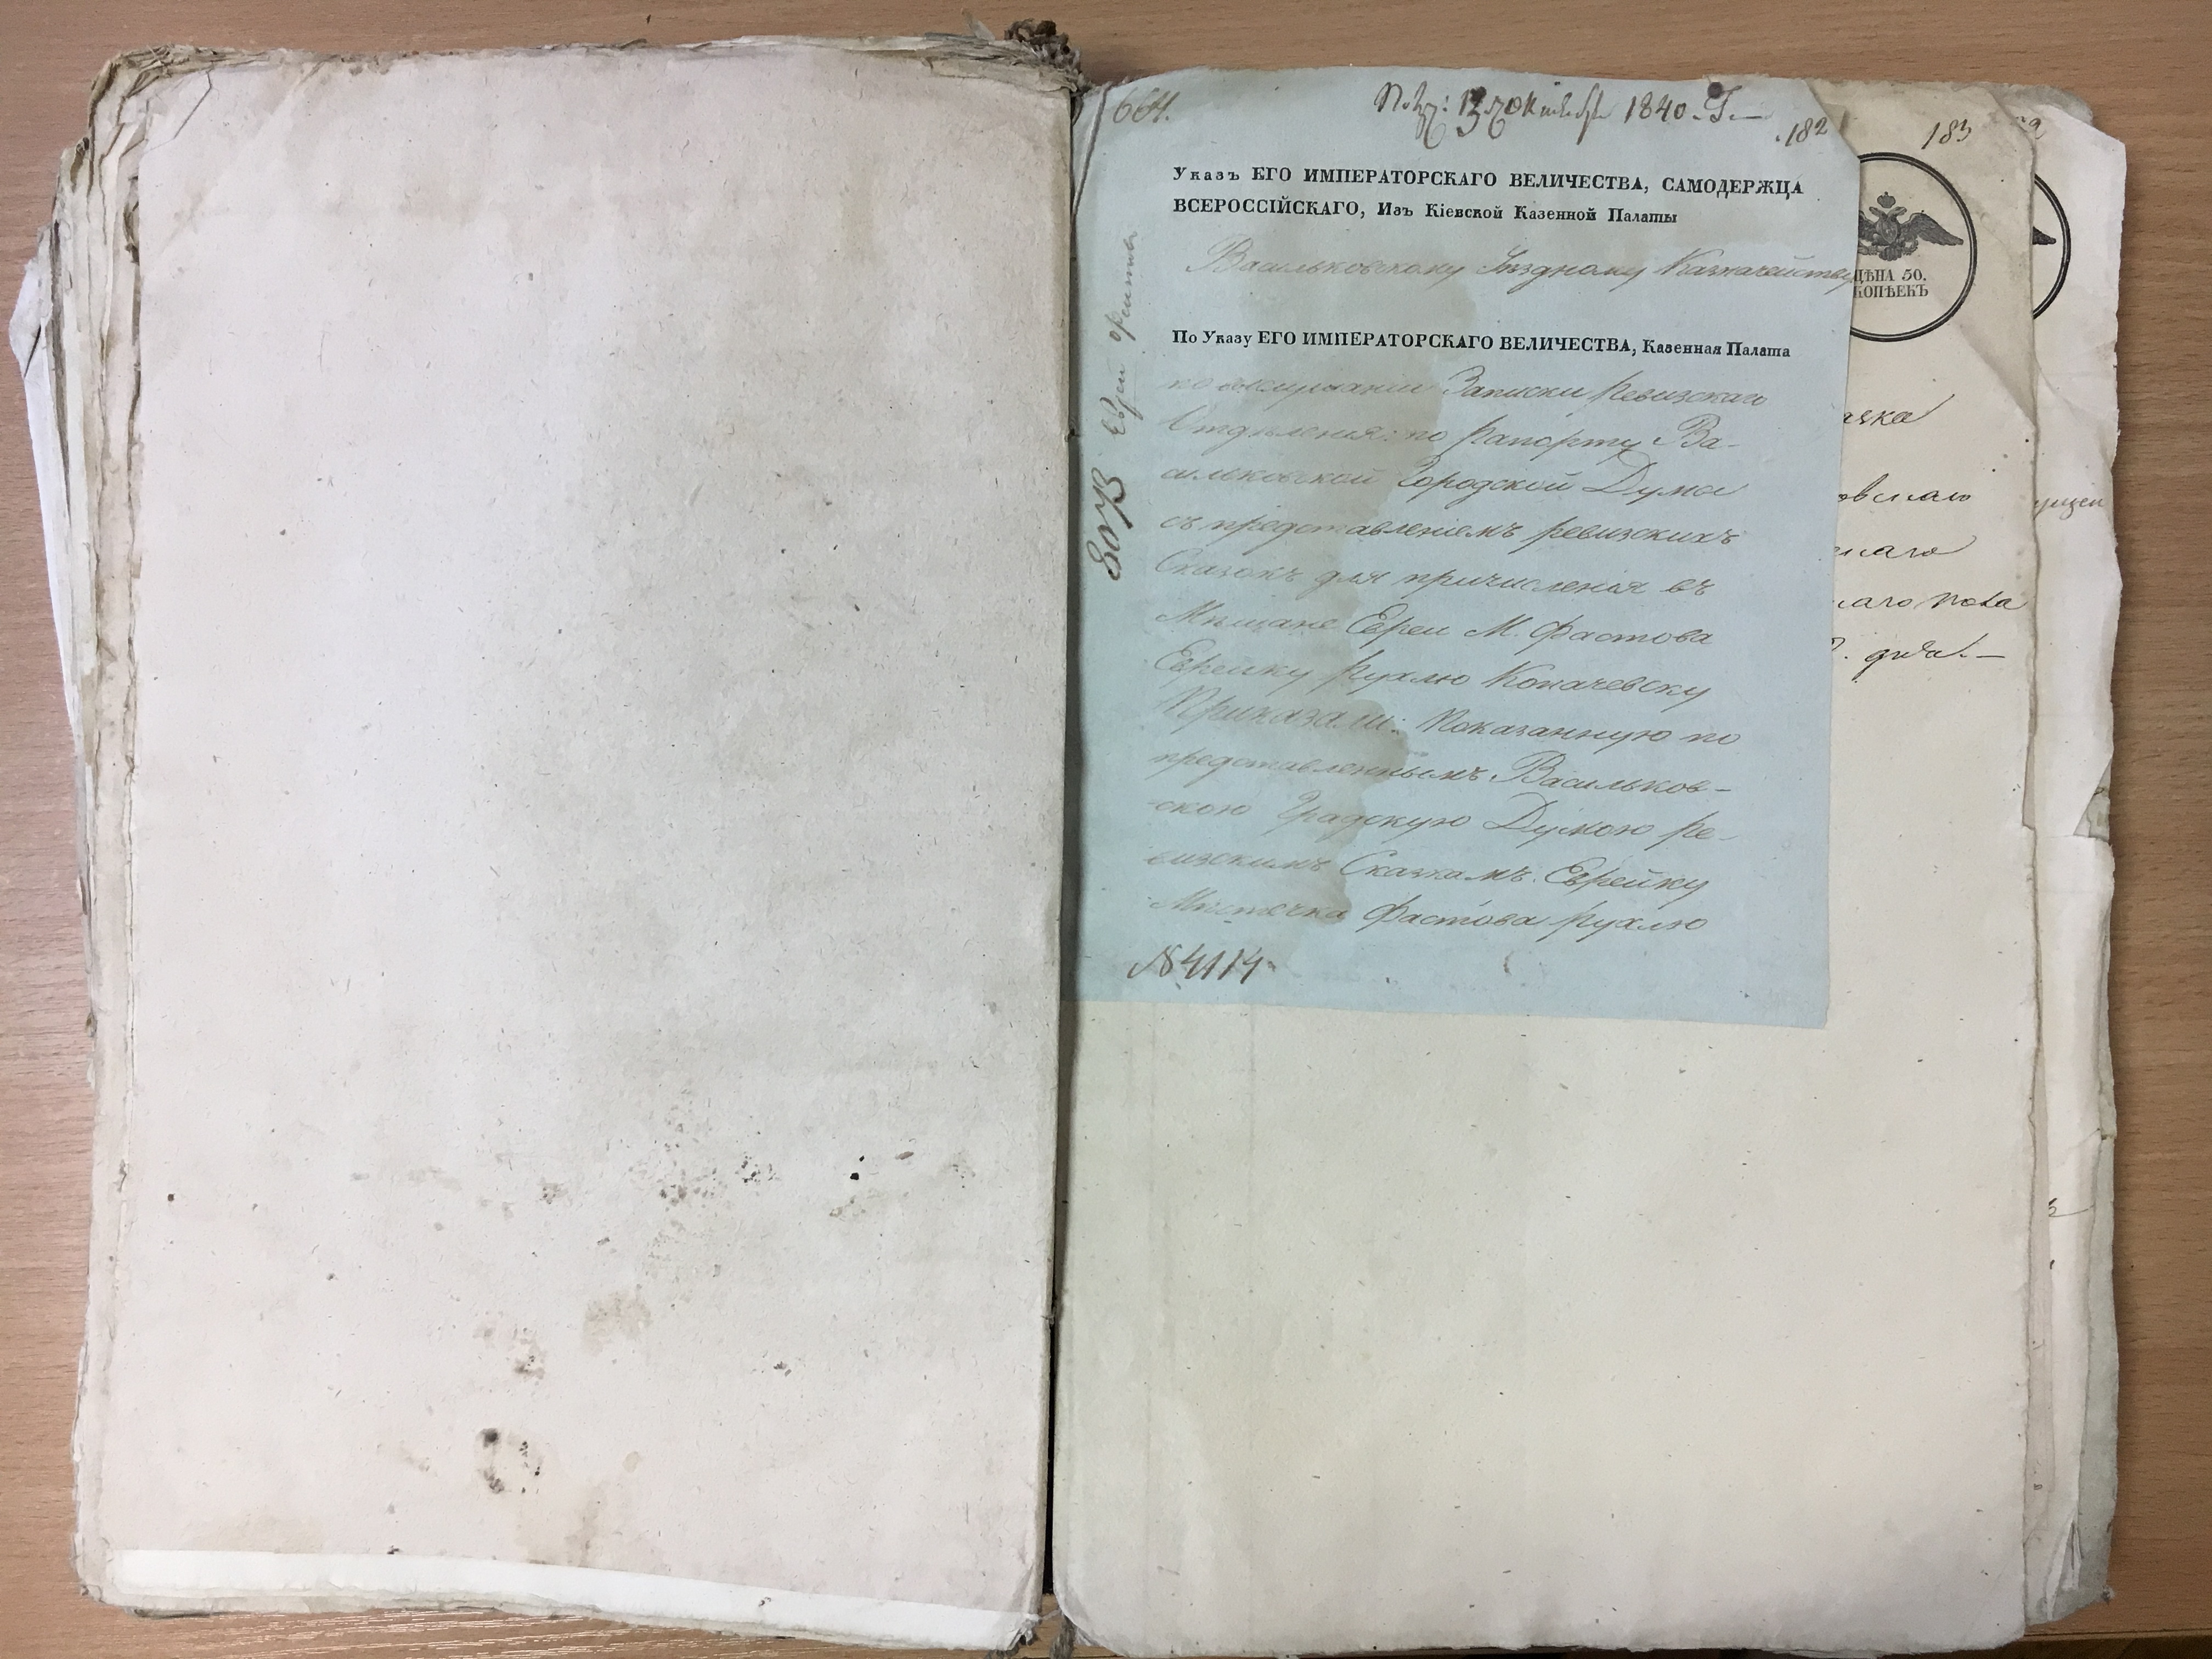 664.
Октября 1840. Г.
182
183
Указъ ЕГО ИМПЕРАТОРСКАГО ВЕЛИЧЕСТВА, САМОДЕРЖЦА
ВСЕРОССІЙСКАГО, Изъ Кіевской Казенной Палаты
Васильковскому Уѣздному Казначейству
По Указу ЕГО ИМПЕРАТОРСКАГО ВЕЛИЧЕСТВА, Казенная Палата
по выслушаніи Записки Ревизскаго
Отдѣленія: по рапорту Ва-
сильковской Городской Думы
съ представленіемъ ревизскихъ
Сказокъ для причисленія въ
Мѣщане Евреи М. Фастова
Еврейку Рухлю Копачевску
Приказали: Показанную по
представленнымъ Васильков-
скою Градскую Думою ре-
визскимъ Сказкамъ Еврейку
Мѣстечка Фастова Рухлю
№ 4114
ЦѢНА 50.
КОПѢЕКЪ